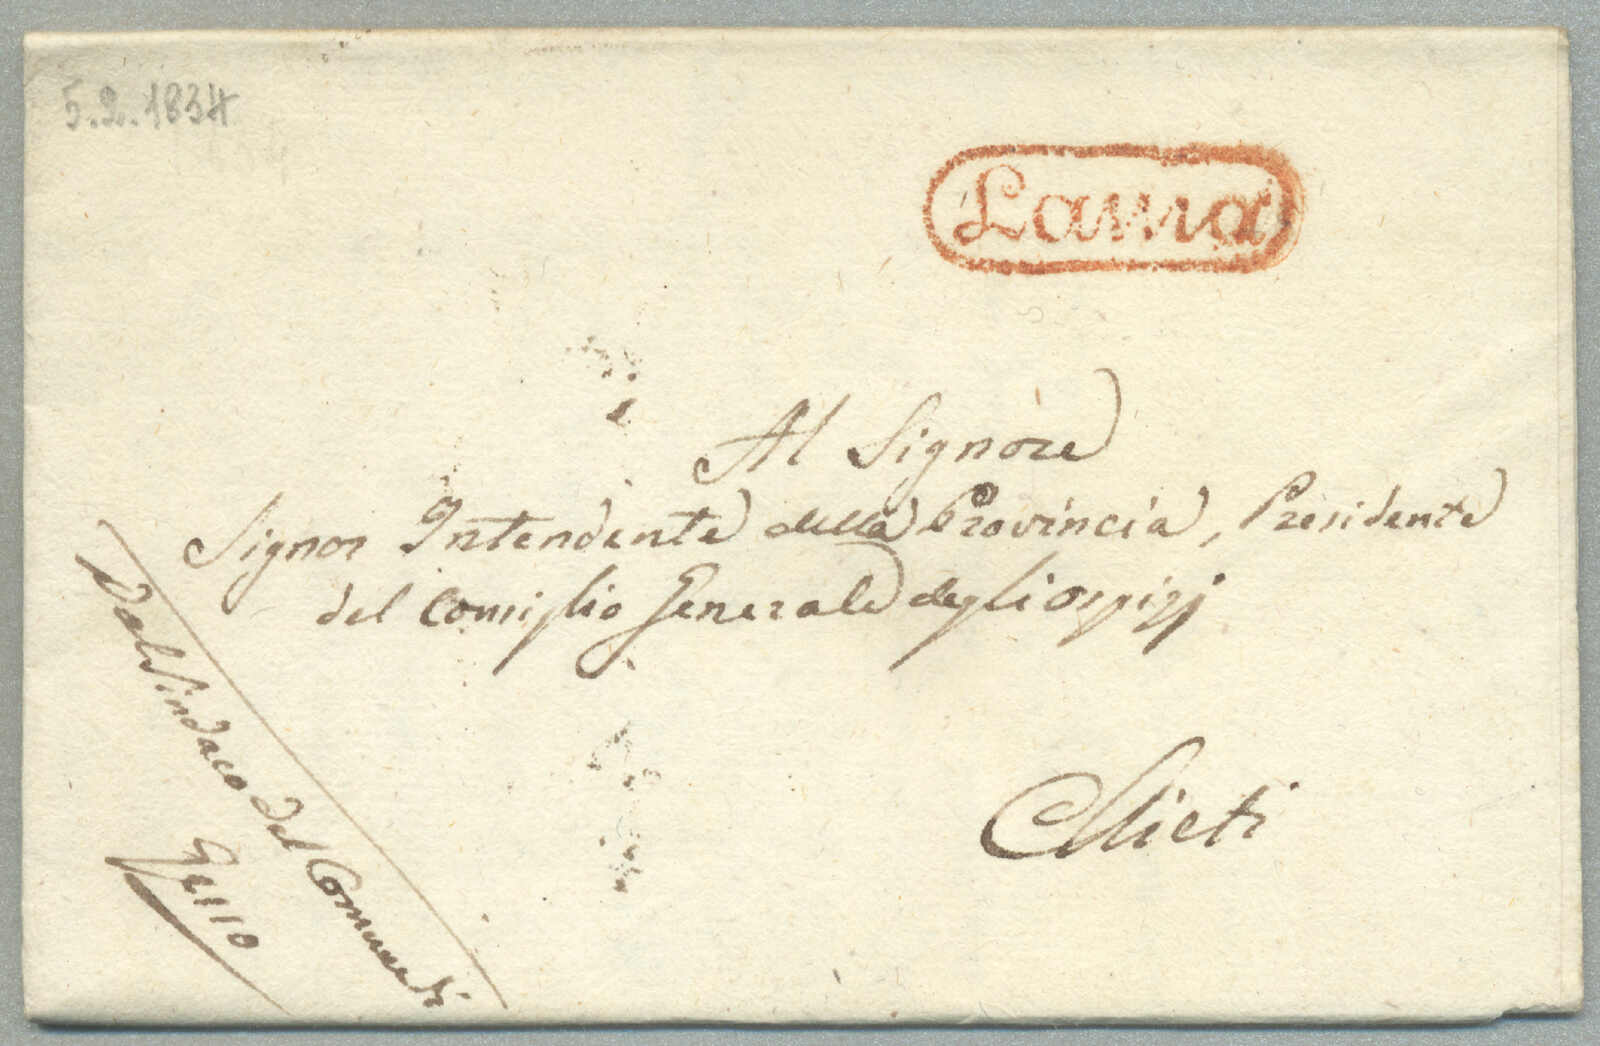 5.2.1834
Lama
Al Signore
Signor Intendente della Provincia, Presidente
del Consiglio Generale degli Ospizj
Chieti
Dal Sindaco del Comune di
Gesso